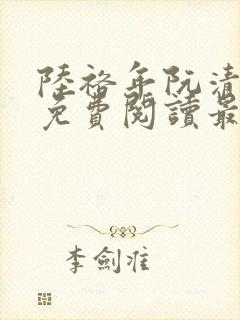 陸裕年阮清
免費閱讀最
李劍准